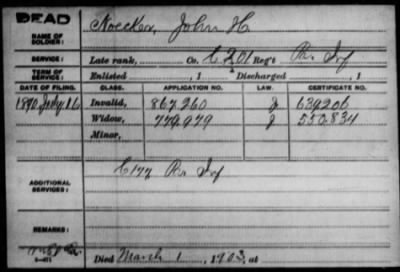 DEAD
NAME OF SOLDIER: Noecker, John H
SERVICE: Late rank, Co. C 201 Reg't Pa. Inf
TERM OF SERVICE: Enlisted , 1 Discharged , 1
DATE OF FILING. CLASS. APPLICATION NO. LAW. CERTIFICATE NO.
1890 July 16 Invalid, 867.260 J 639206
Widow, 779.979 J 550.834
Minor,
ADDITIONAL SERVICES: C 177 Pa. Inf
REMARKS:
Died March 1, 1903, at